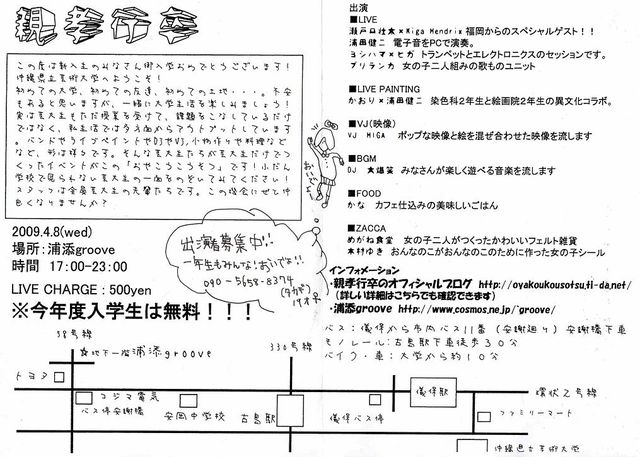 親孝行卒
この度は新入生のみなさん御入学おめでとうございます!
沖縄県立芸術大学へようこそ!
初めての大学、初めての友達、初めての土地・・・。不安
もあると思いますが、一緒に大学生活を楽しみましょう!
実は芸大生もただ授業を受けて、課題をこなしているだけ
ではなく、私生活では多方面からアウトプットしています
。バンドやライブペイントやDJやVJ,小物作りや料理など
など、形は様々です。そんな芸大生たちが芸大生だけでつ
くったイベントがこの「おやこうこうそつ」です!ふだん
学校で見られない芸大生の一面をのぞいてみてください!
スタッフは全員芸大生の先輩たちです。この機会にぜひ仲
良くなりませんか?
2009.4.8(wed)
場所:浦添groove
時間 17:00-23:00
LIVE CHARGE : 500yen
※今年度入学生は無料!!!
出演者募集中!!
一年生もみんな!おいでよ!!
090-5658-8374
出演
■LIVE
瀬戸口壮太×Kiga Hendrix 福岡からのスペシャルゲスト!!
浦田健二 電子音をPCで演奏。
ヨシハマ×ヒガ トランペットとエレクトロニクスのセッションです。
プリランカ 女の子二人組みの歌ものユニット
■LIVE PAINTING
かおり×浦田健二 染色科2年生と絵画院2年生の異文化コラボ。
■VJ(映像)
VJ HIGA ポップな映像と絵を混ぜ合わせた映像を流します
■BGM
DJ 大爆笑 みなさんが楽しく遊べる音楽を流します
■FOOD
かな カフェ仕込みの美味しいごはん
■ZACCA
めがね食堂 女の子二人がつくったかわいいフェルト雑貨
木村ゆき おんなのこがおんなのこのために作った女の子シール
インフォメーション
・親孝行卒のオフィシャルブログ http://oyakoukousotsu.ti-da.net/
(詳しい詳細はこちらでも確認できます)
・浦添groove http://www.cosmos.ne.jp/~groove/
バス:儀保から市内バス11番(安謝廻り)安謝橋下車
モノレール:古島駅下車徒歩30分
バイク・車:大学から約10分
58号線
330号線
☆地下一階浦添groove
トヨタ
コジマ電気
バス停安謝橋
安岡中学校
古島駅
儀保バス停
儀保駅
環状2号線
ファミリーマート
沖縄県立芸術大学